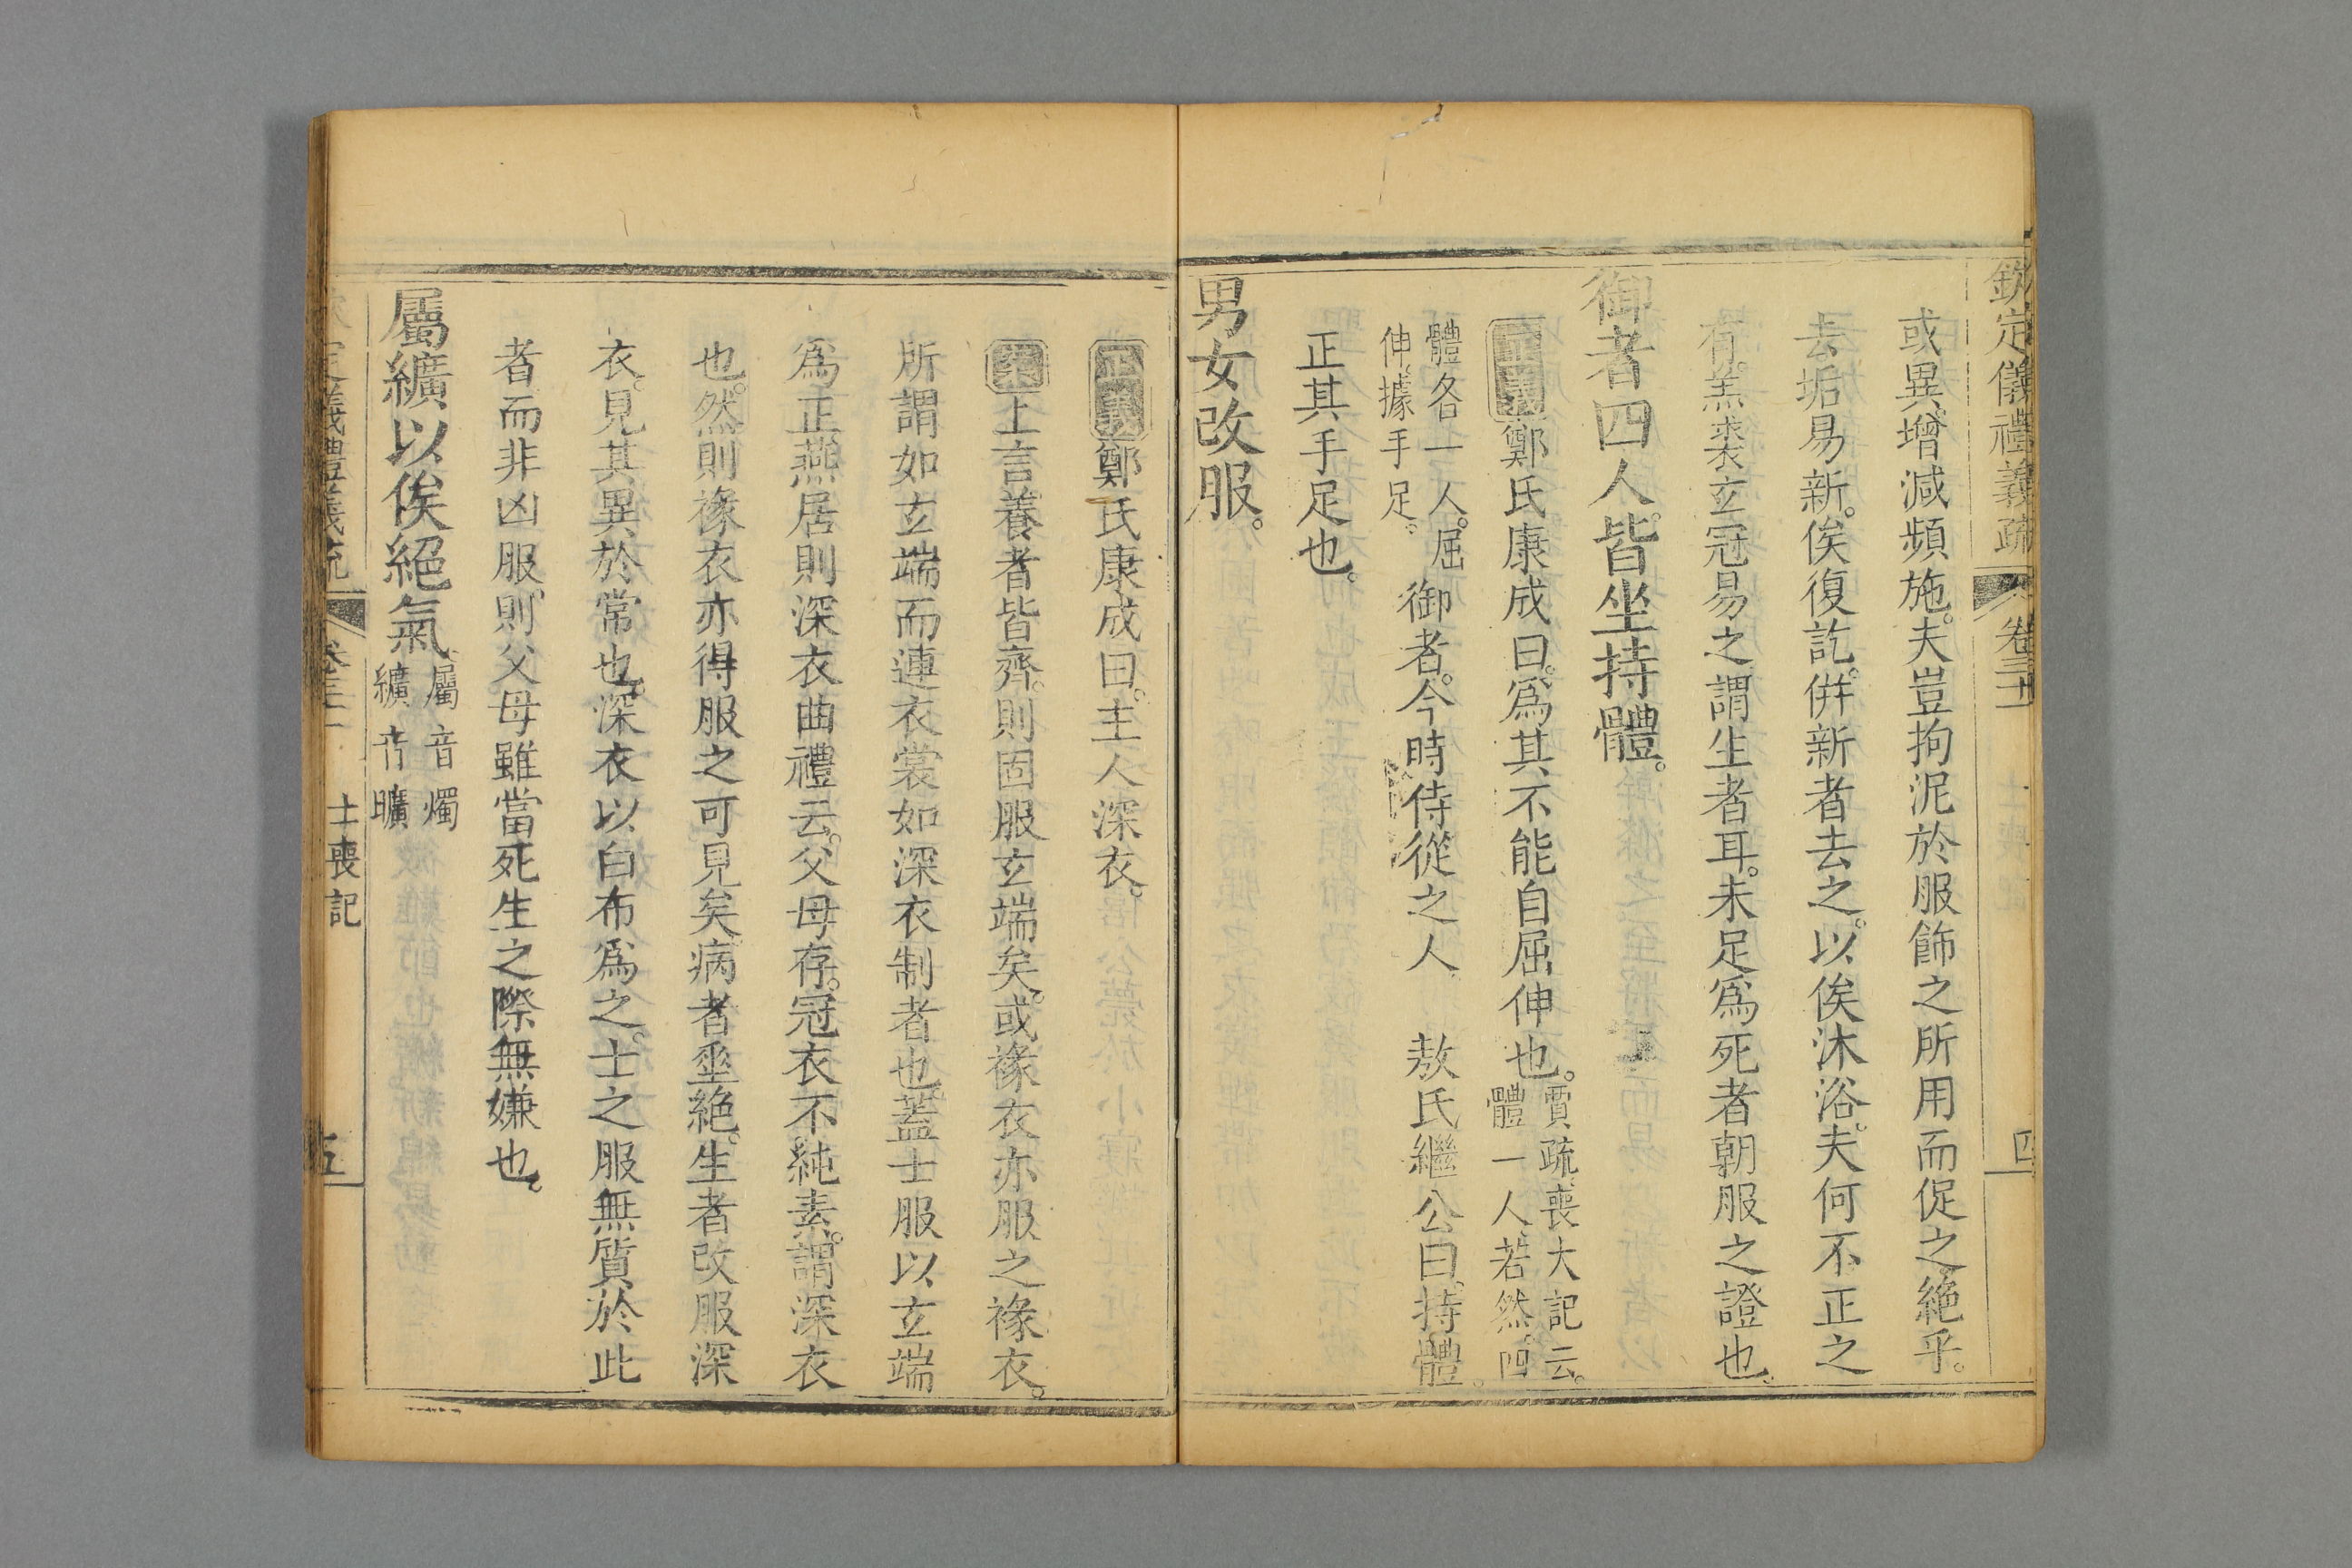 欽定儀禮義疏 卷三十一 四
或異增減頻施。夫豈拘泥於服飾之所用而促之絕乎。
去垢易新。俟復訖。倂新者去之。以俟沐浴。夫何不正之
有。羔裘玄冠易之謂生者耳。未足爲死者朝服之證也。
御者四人。皆坐持體。
正義鄭氏康成曰。爲其不能自屈伸也。賈疏。喪大記云。體一人。若然。四
體各一人。屈伸。據手足。御者。今時侍從之人 敖氏繼公曰。持體。
正其手足也。
男女改服。
正義鄭氏康成曰。主人深衣。
案上言養者皆齊。則固服玄端矣。或褖衣亦服之褖衣。
所謂如玄端而連衣裳如深衣制者也。蓋士服以玄端
爲正燕居則深衣曲禮云。父母存。冠衣不純素。謂深衣
也。然則褖衣亦得服之可見矣。病者垂絕。生者改服深
衣。見其異於常也。深衣以白布爲之。士之服無質於此
者而非凶服。則父母雖當死生之際無嫌也。
屬纊以俟絕氣。屬音燭纊音曠
士喪記 五